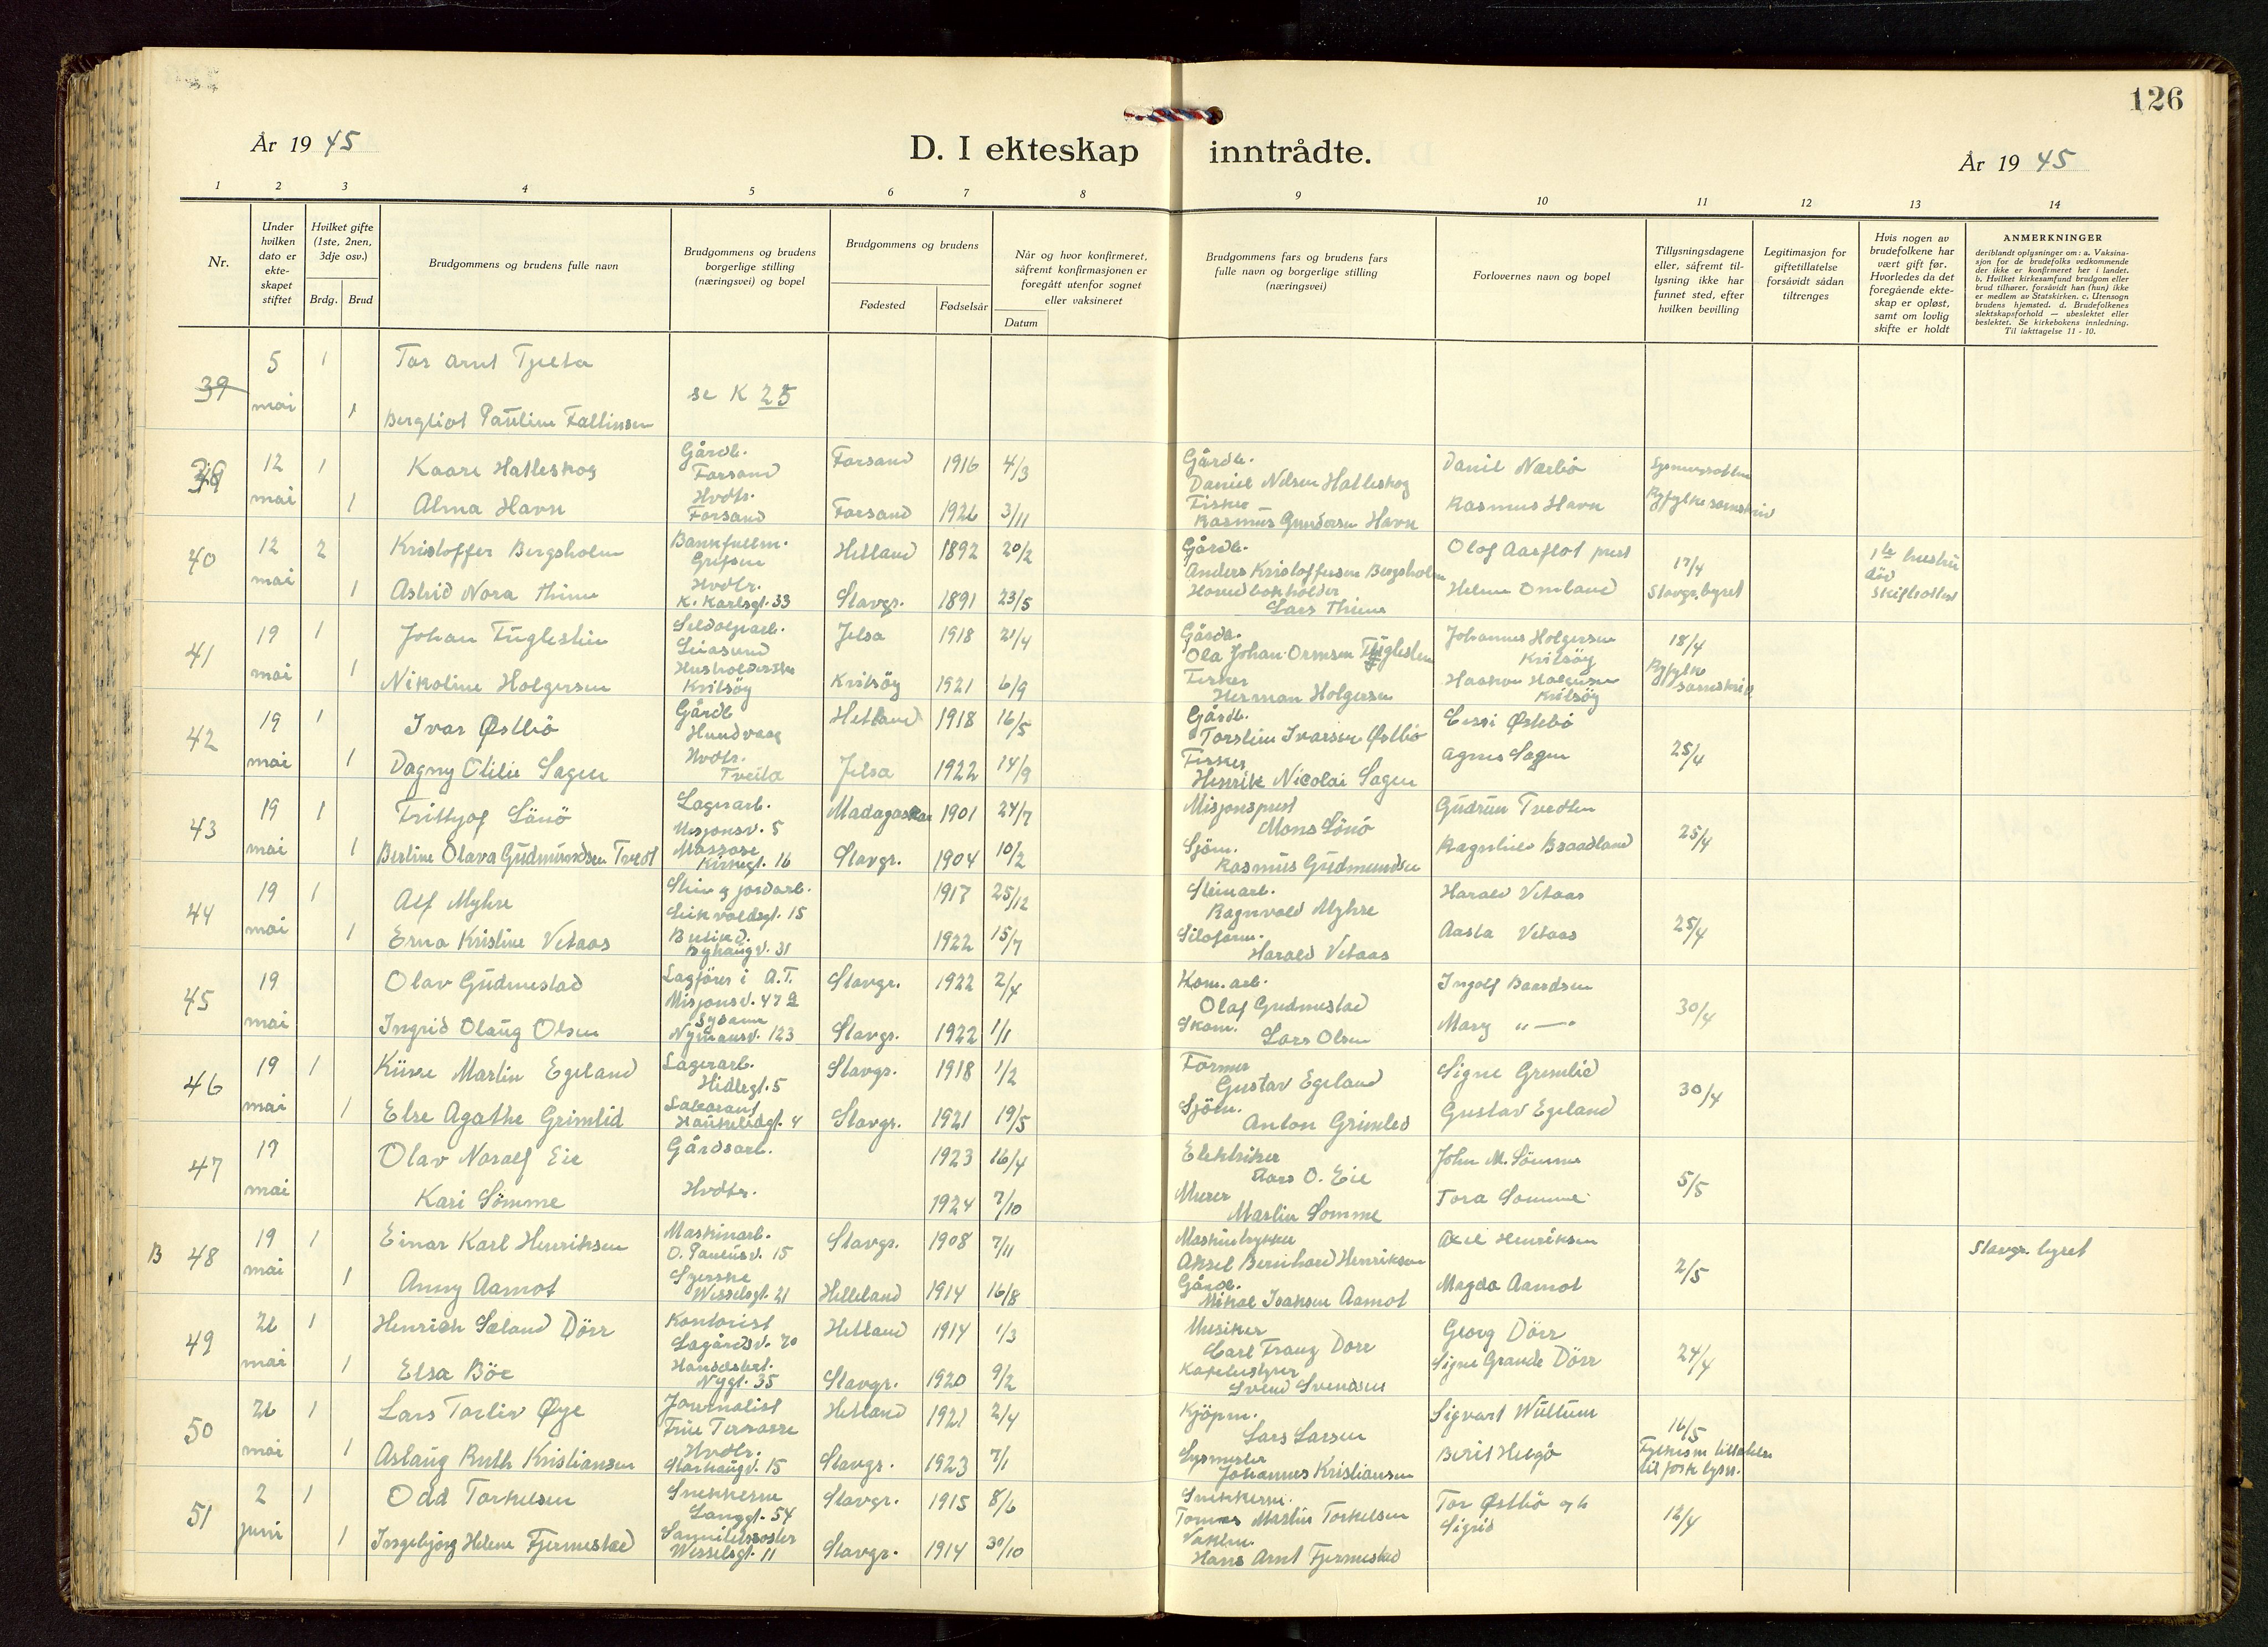 126
År 19 45
D. I ekteskap inntrådte.
År 19 45
1 2 3 4 5 6 7 8 9 10 11 12 13 14
Nr.
Under hvilken dato er ekte-skapet stiftet
Hvilket gifte (1ste, 2nen, 3dje osv.)
Brdg. Brud
Brudgommens og brudens fulle navn
Brudgommens og brudens borgerlige stilling (næringsvei) og bopel
Brudgommens og brudens
Fødested Fødselsår
Når og hvor konfirmeret, såfremt konfirmasjonen er foregått utenfor sognet eller vaksineret
Datum
Brudgommens fars og brudens fars fulle navn og borgerlige stilling (næringsvei)
Forlovernes navn og bopel
Tillysningsdagene eller, såfremt til-lysning ikke har funnet sted, efter hvilken bevilling
Legitimasjon for giftetillatelse forsåvidt sådan tiltrenges
Hvis nogen av brudefolkene har vært gift før. Hvorledes da det foregående ekte-skap er opløst, samt om lovlig skifte er holdt
ANMERKNINGER
deriblandt oplysninger om: a. Vaksina-sjon for de brudefolks vedkommende der ikke er konfirmeret her i landet. b. Hvilket kirkesamfund brudgom eller brud tilhører, forsåvidt han (hun) ikke er medlem av Statskirken. c. Utensogn brudens hjemsted. d. Brudefolkenes slektskapsforhold — ubeslektet eller beslektet. Se kirkebokens innledning. Til iakttagelse 11 - 10.
39 5 mai 1 Tor Arnt Tjelta
se K 25
1 Bergliot Pauline Fallinsen
12 mai 1 Kaare Halleskog Gårdb. Forsand Forsand 1916 4/3 Gårdb. Daniel Nilsen Halleskog Daniel Nærbö
1 Alma Havn Hvdtr. Forsand Forsand 1926 3/11 Fisker Rasmus Gundersen Havn Rasmus Havn Ryfylke sorenskriv
40 12 mai 2 Kristoffer Bergsholm Bankfullm. Grefsen Hetland 1892 20/2 Gårdb. Anders Kristoffersen Bergsholm Olaf Aarflot prest 17/4 1ste hustru död
1 Astrid Nora Thime Hvdtr. K. Karlsgt. 33 Stavgr. 1891 23/5 Hovedbokholder Lars Thime Helene Omland Stavgr. byret
41 19 mai 1 Johan Fuglestein Jelsa 1918 21/4 Gårdb. Ola Johan Ormsen Fuglestein Johannes Holgersen Kvitsöy 18/4
1 Nikoline Holgersen Husholderske Kvitsöy Kvitsöy 1921 6/9 Fisker Herman Holgersen Haakon Holgersen Kvitsöy Ryfylke sorenskriv
42 19 mai 1 Ivar Østbö Gårdb Hundvaag Hetland 1918 16/5 Gårdb. Torstein Ivarsen Østbö Østebö 25/4
1 Dagny Otilie Sagen Hvdtr. Tveita Jelsa 1922 14/9 Fisker Henrik Nicolai Sagen Agnes Sagen
43 19 mai 1 Frittjof Lönö Lagerarb. Misjonsv. 5 Madagaskar 1901 24/7 Misjonsprest Mons Lönö Gudrun Tvedten 25/4
1 Bertine Olava Gudmundsen Tvedt Massøse Kirkegt. 16 Stavgr. 1904 10/2 Sjöm. Rasmus Gudmundsen Ragnhild Braadland
44 19 mai 1 Alf Myhre Stein og jordarb. Eirikvoldsgt. 15 1917 25/12 Steinarb. Ragnvald Myhre Harald Vetaas 25/4
1 Erna Kristine Vetaas Byhaugv. 31 1922 15/7 Harald Vetaas Aasta Vetaas
45 19 mai Olav Gudmestad Lagförer i A.T. Misjonsv. 47 a Stavgr. 1922 2/4 Kom. arb. Olaf Gudmestad Ingolf Baardsen 30/4
Ingrid Olaug Olsen Sydame Nymansv. 123 Stavgr. 1922 1/1 Skom. Lars Olsen Mary " — "
46 19 mai 1 Kåre Martin Egeland Lagerarb. Hidlegt. 5 Stavgr. 1918 1/2 Former Gustav Egeland Signe Grimlid 30/4
1 Else Agathe Grimlid Stavgr. 1921 19/5 Sjöm. Anton Grimlid Gustav Egeland
47 19 mai Olav Noralf Eie Gårdsarb. 1923 16/4 Elektriker Lars O. Eie John M. Sömme 5/5
Kari Sömme Hvdtr. 1924 7/10 Murer Martin Sömme Tora Sömme
B 48 19 mai 1 Einar Karl Henriksen Maskinarb. O. Paulusv. 15 Stavgr. 1908 7/11 Maskintrykker Aksel Bernhard Henriksen Axel Henriksen 2/5 Stavgr. byret
1 Anny Aamot Syerske Wesselsgt. 21 Helleland 1914 16/8 Gårdb. Mikal Isaksen Aamot Magda Aamot
49 26 mai 1 Henrich Sæland Dörr Kontorist Lagårdsv. 70 Hetland 1914 1/3 Musiker Carl Franz Dörr Georg Dörr 24/4
1 Elsa Böe Nygt. 35 Stavgr. 1920 9/2 Svend Svendsen Signe Grande Dörr
50 26 mai 1 Lars Torleiv Øye Journalist Frue Terrasse Hetland 1921 2/4 Kjöpm. Lars Larsen Sigvart Wullum 16/5
1 Aslaug Ruth Kristiansen Hvdtr. Storhaugv. 15 Stavgr. 1923 7/1 Johannes Kristiansen Berit Helgö Fylkesm. tillatelse til fork. lysn.
51 2 juni 1 Odd Torkelsen Snekkersv. Langgt. 54 Stavgr. 1915 8/6 Snekkersv. Tomas Martin Torkelsen Tor Østbö og h 12/4
1 Ingebjørg Helene Fjermestad Sanitetssöster Wesselsgt. 11 Stavgr. 1914 30/10 Vaktm. Hans Arnt Fjermestad Sigrid